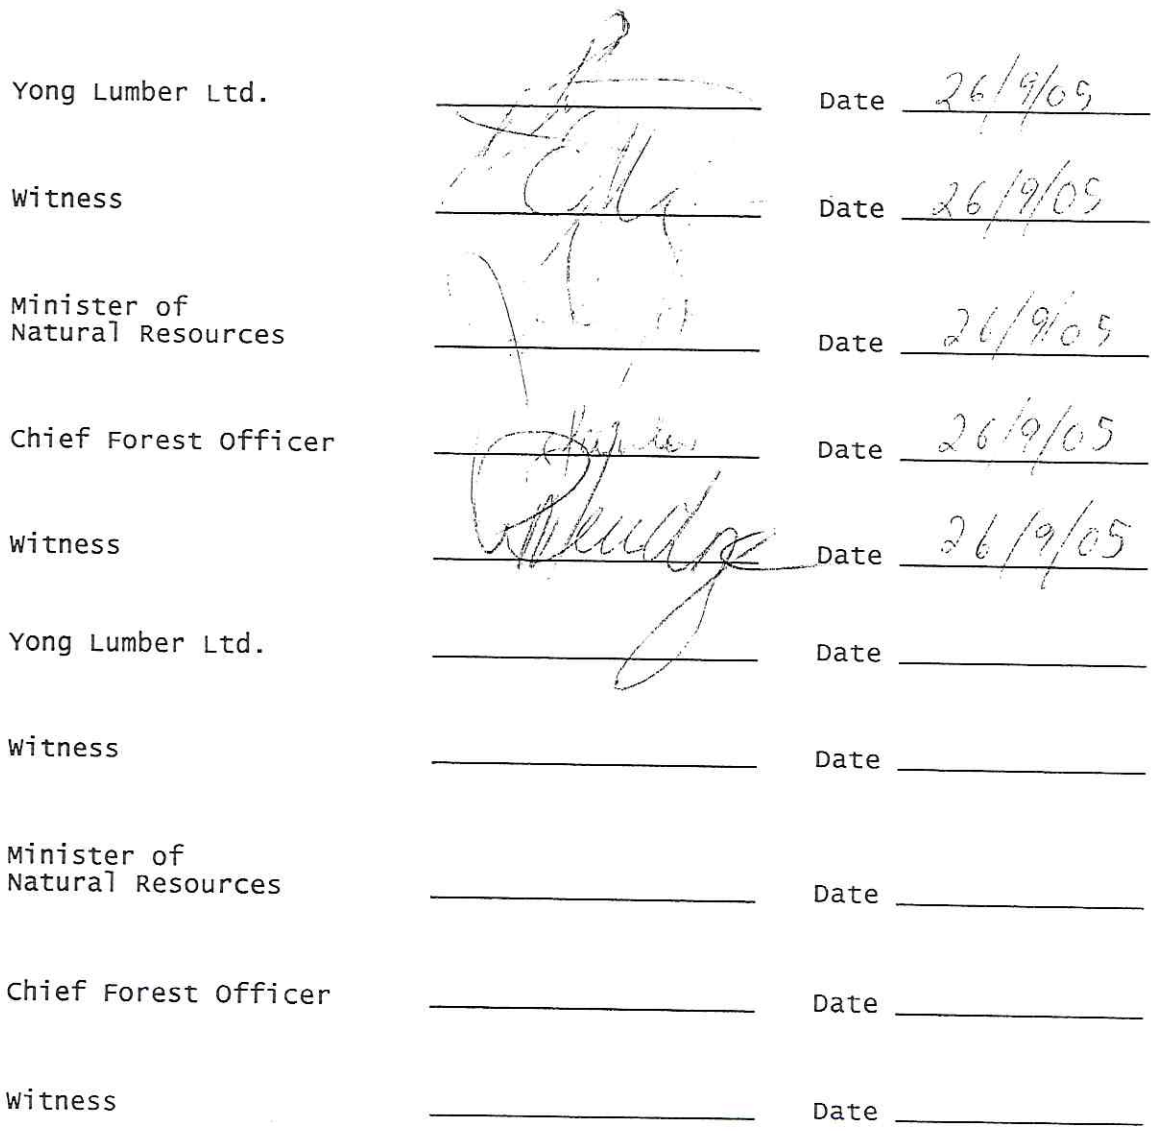 Yong Lumber Ltd. Date 26/9/05
Witness Date 26/9/05
Minister of
Natural Resources Date 26/9/05
Chief Forest Officer Date 26/9/05
Witness Date 26/9/05
Yong Lumber Ltd. Date
Witness Date
Minister of
Natural Resources Date
Chief Forest Officer Date
Witness Date